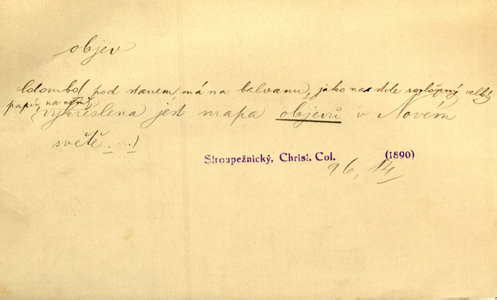 objev
(Colombo) pod stanem má na balvanu, jako na stole rozložený velký
papír, na němž)
vykreslena jest mapa objevů v Novém
světě ....)
Stroupežnický, Christ. Col. (1890)
96, 14